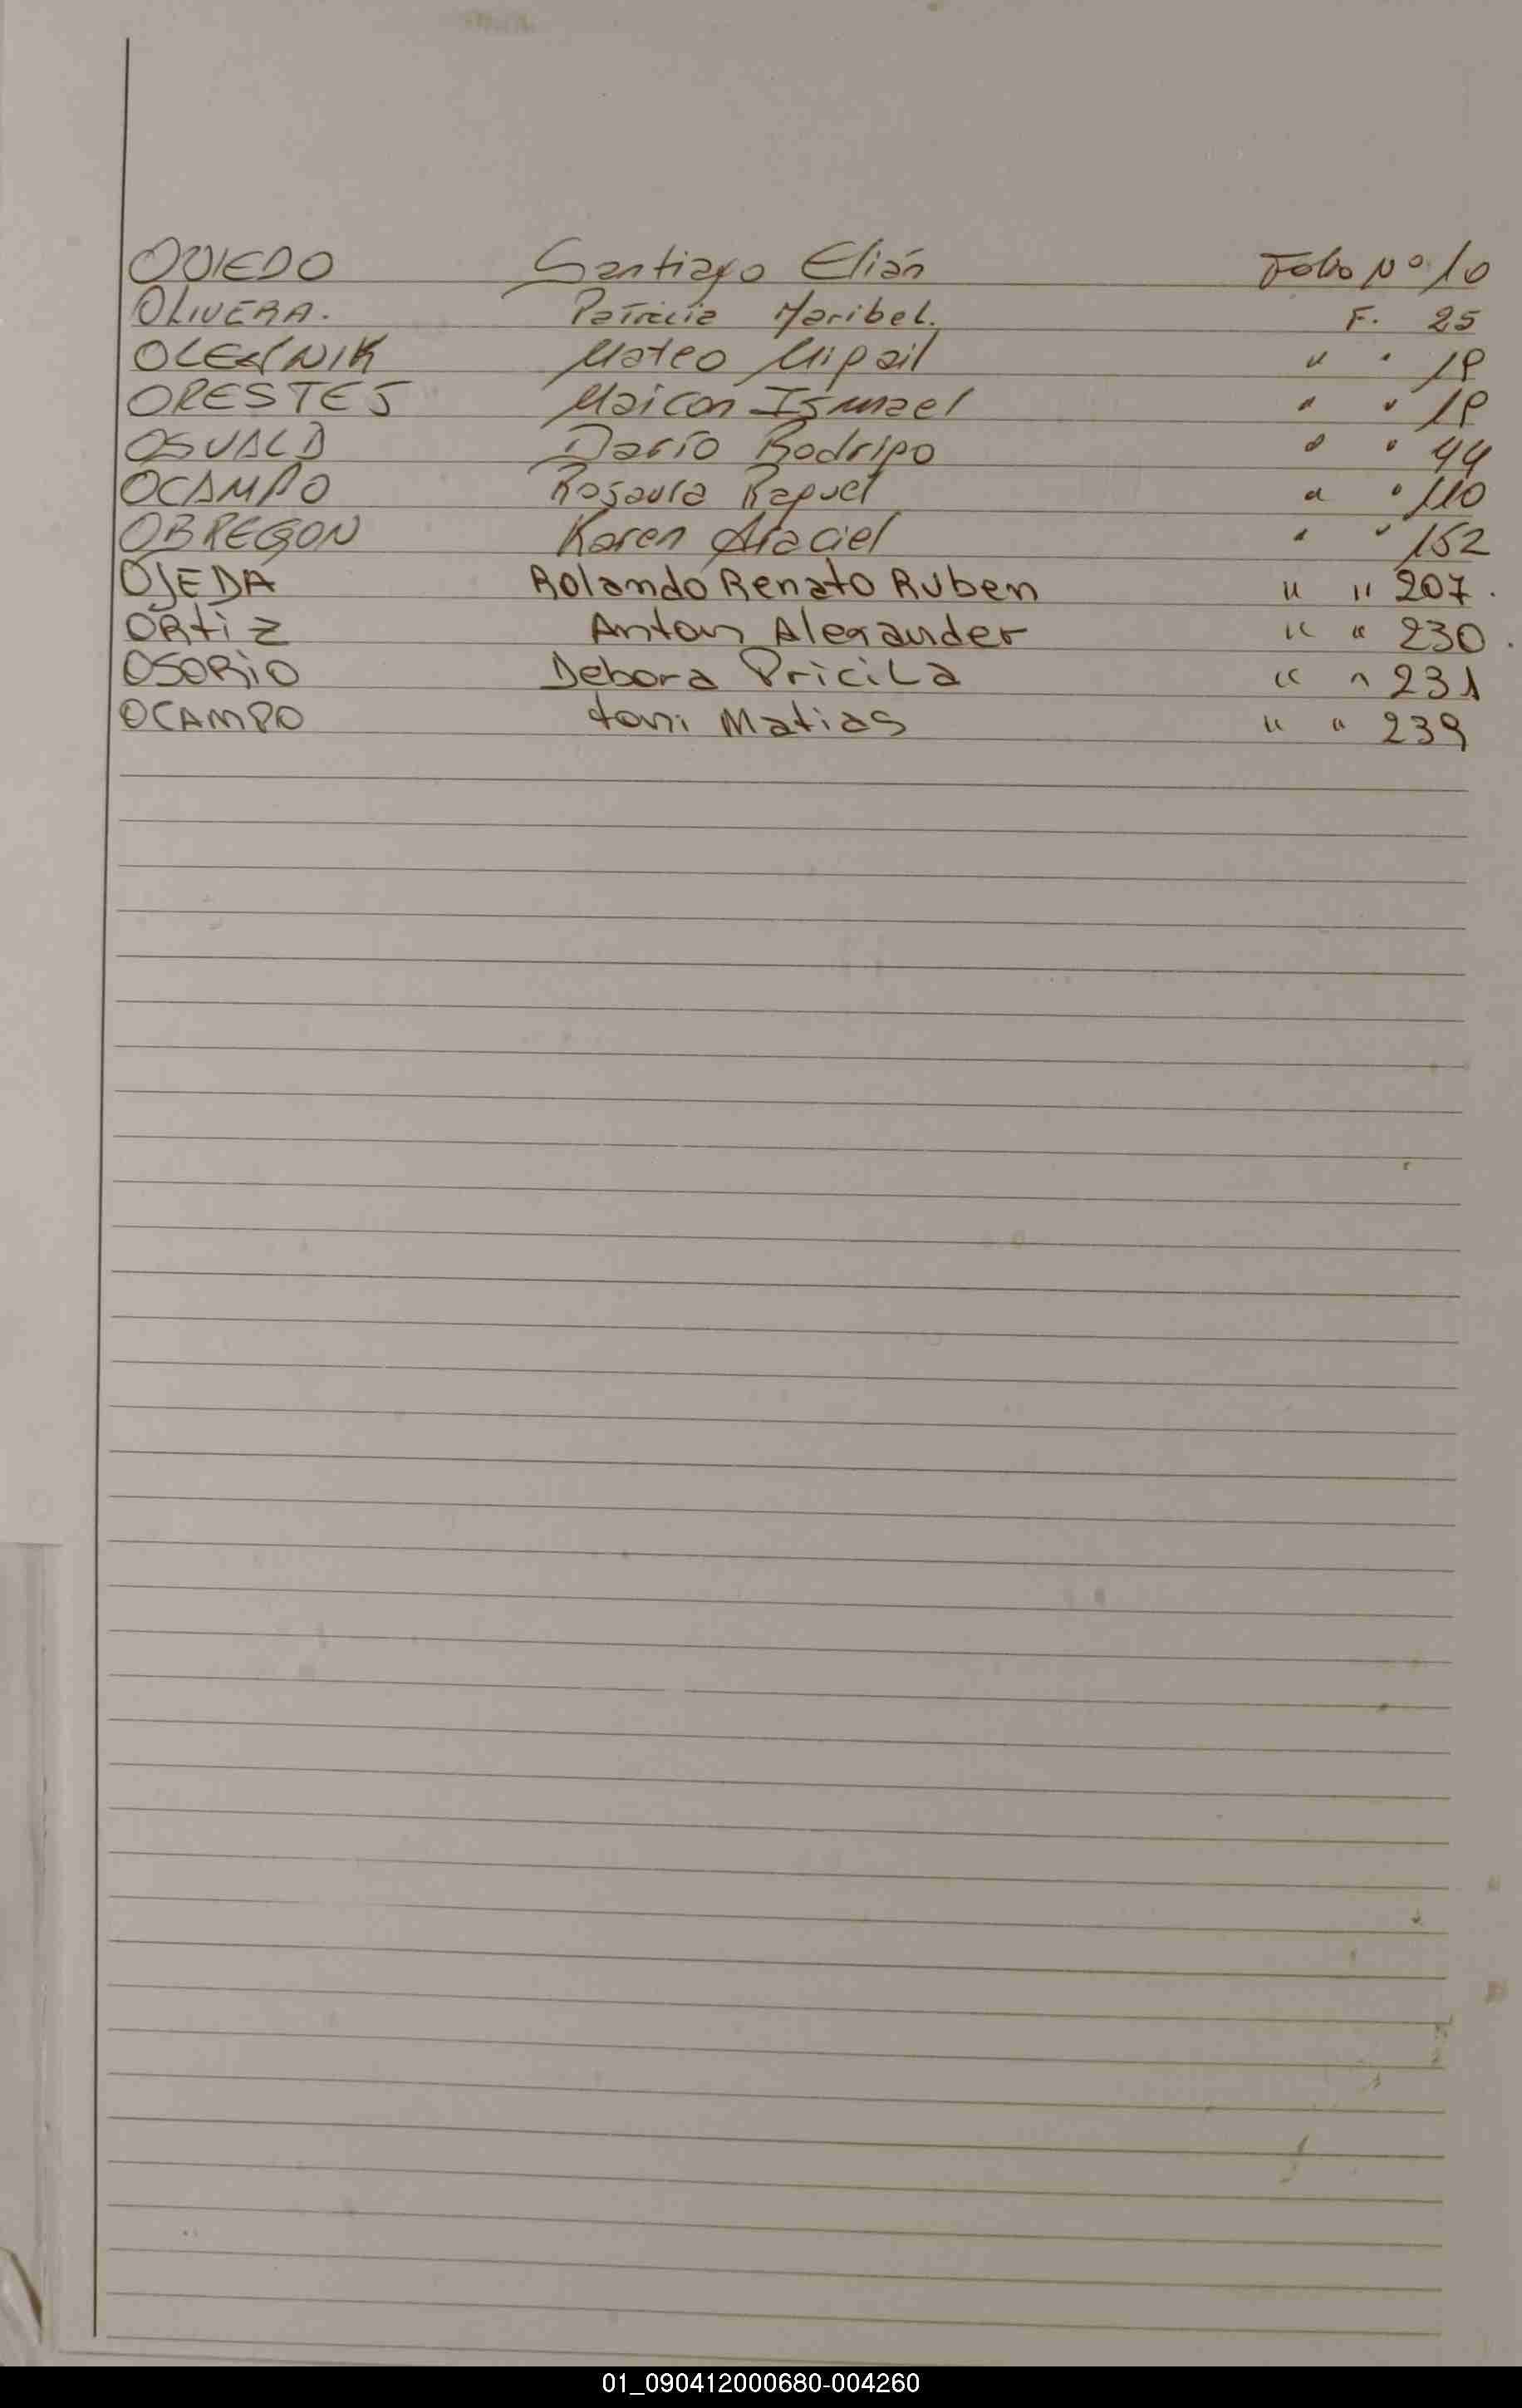 OVIEDO Santiago Elián Folio Nº 10
OLIVERA. Patricia Maribel. F. 25
Mateo Migail " " 18
ORESTES Maicon Ismael " " 18
OSVALD Darío Rodrigo " " 44
OCAMPO Rosaura Raquel " " 110
OBREGON Karen Araciel " " 152
OJEDA Rolando Renato Ruben " " 207.
ORtiz Anton Alexander " " 230.
OSORiO Debora PriciLa " " 231
OCAMPO toni Matias " " 239
01_090412000680-004260